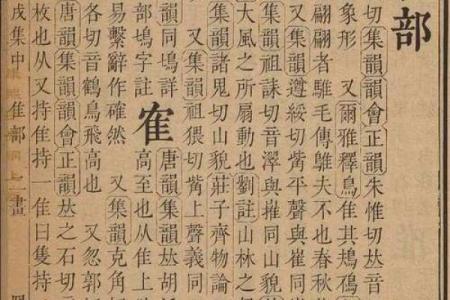 部
切集韻韻會正韻朱惟切𠀤音
象形　又爾雅釋鳥隹其鳺鴀
翩翩者騅毛傳騅夫不也春秋
又集韻遵綏切觜平聲與崔同
集韻祖誄切音濢與摧同山貌
大風之所扇動也劉註山林之
集韻諸鬼切山貌莊子齊物論
又集韻祖猥切觜上聲義同
韻同塢詳
部塢字註
隺
唐韻集韻𠀤胡
高至也从隹上
易繫辭作確然　又集韻克角
各切音鶴鳥飛高也　又忽郭
唐韻集韻韻會正韻𠀤之石切
枚也从又持隹持一隹曰隻持
戌集中　隹部　一畫